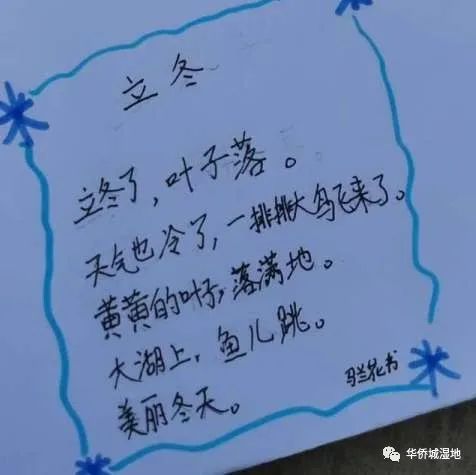 立冬
立冬了，叶子落。
天气也冷了，一排排大鸟飞来了。
黄黄的叶子，落满地。
大湖上，鱼儿跳。
美丽冬天。
马兰花书
华侨城湿地